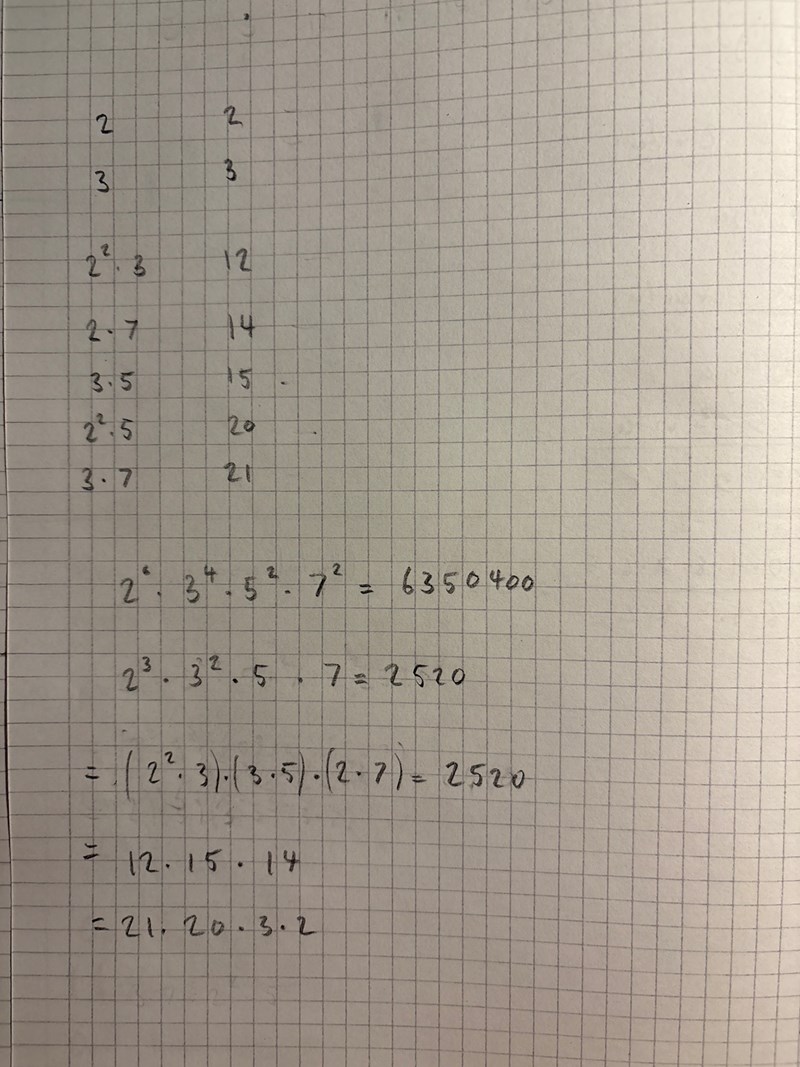 2 2
3 3
2²·3 12
2·7 14
3·5 15
2²·5 20
3·7 21
2⁶·3⁴·5²·7² = 6350400
2³·3²·5·7 = 2520
= (2²·3)·(3·5)·(2·7) = 2520
= 12·15·14
= 21·20·3·2